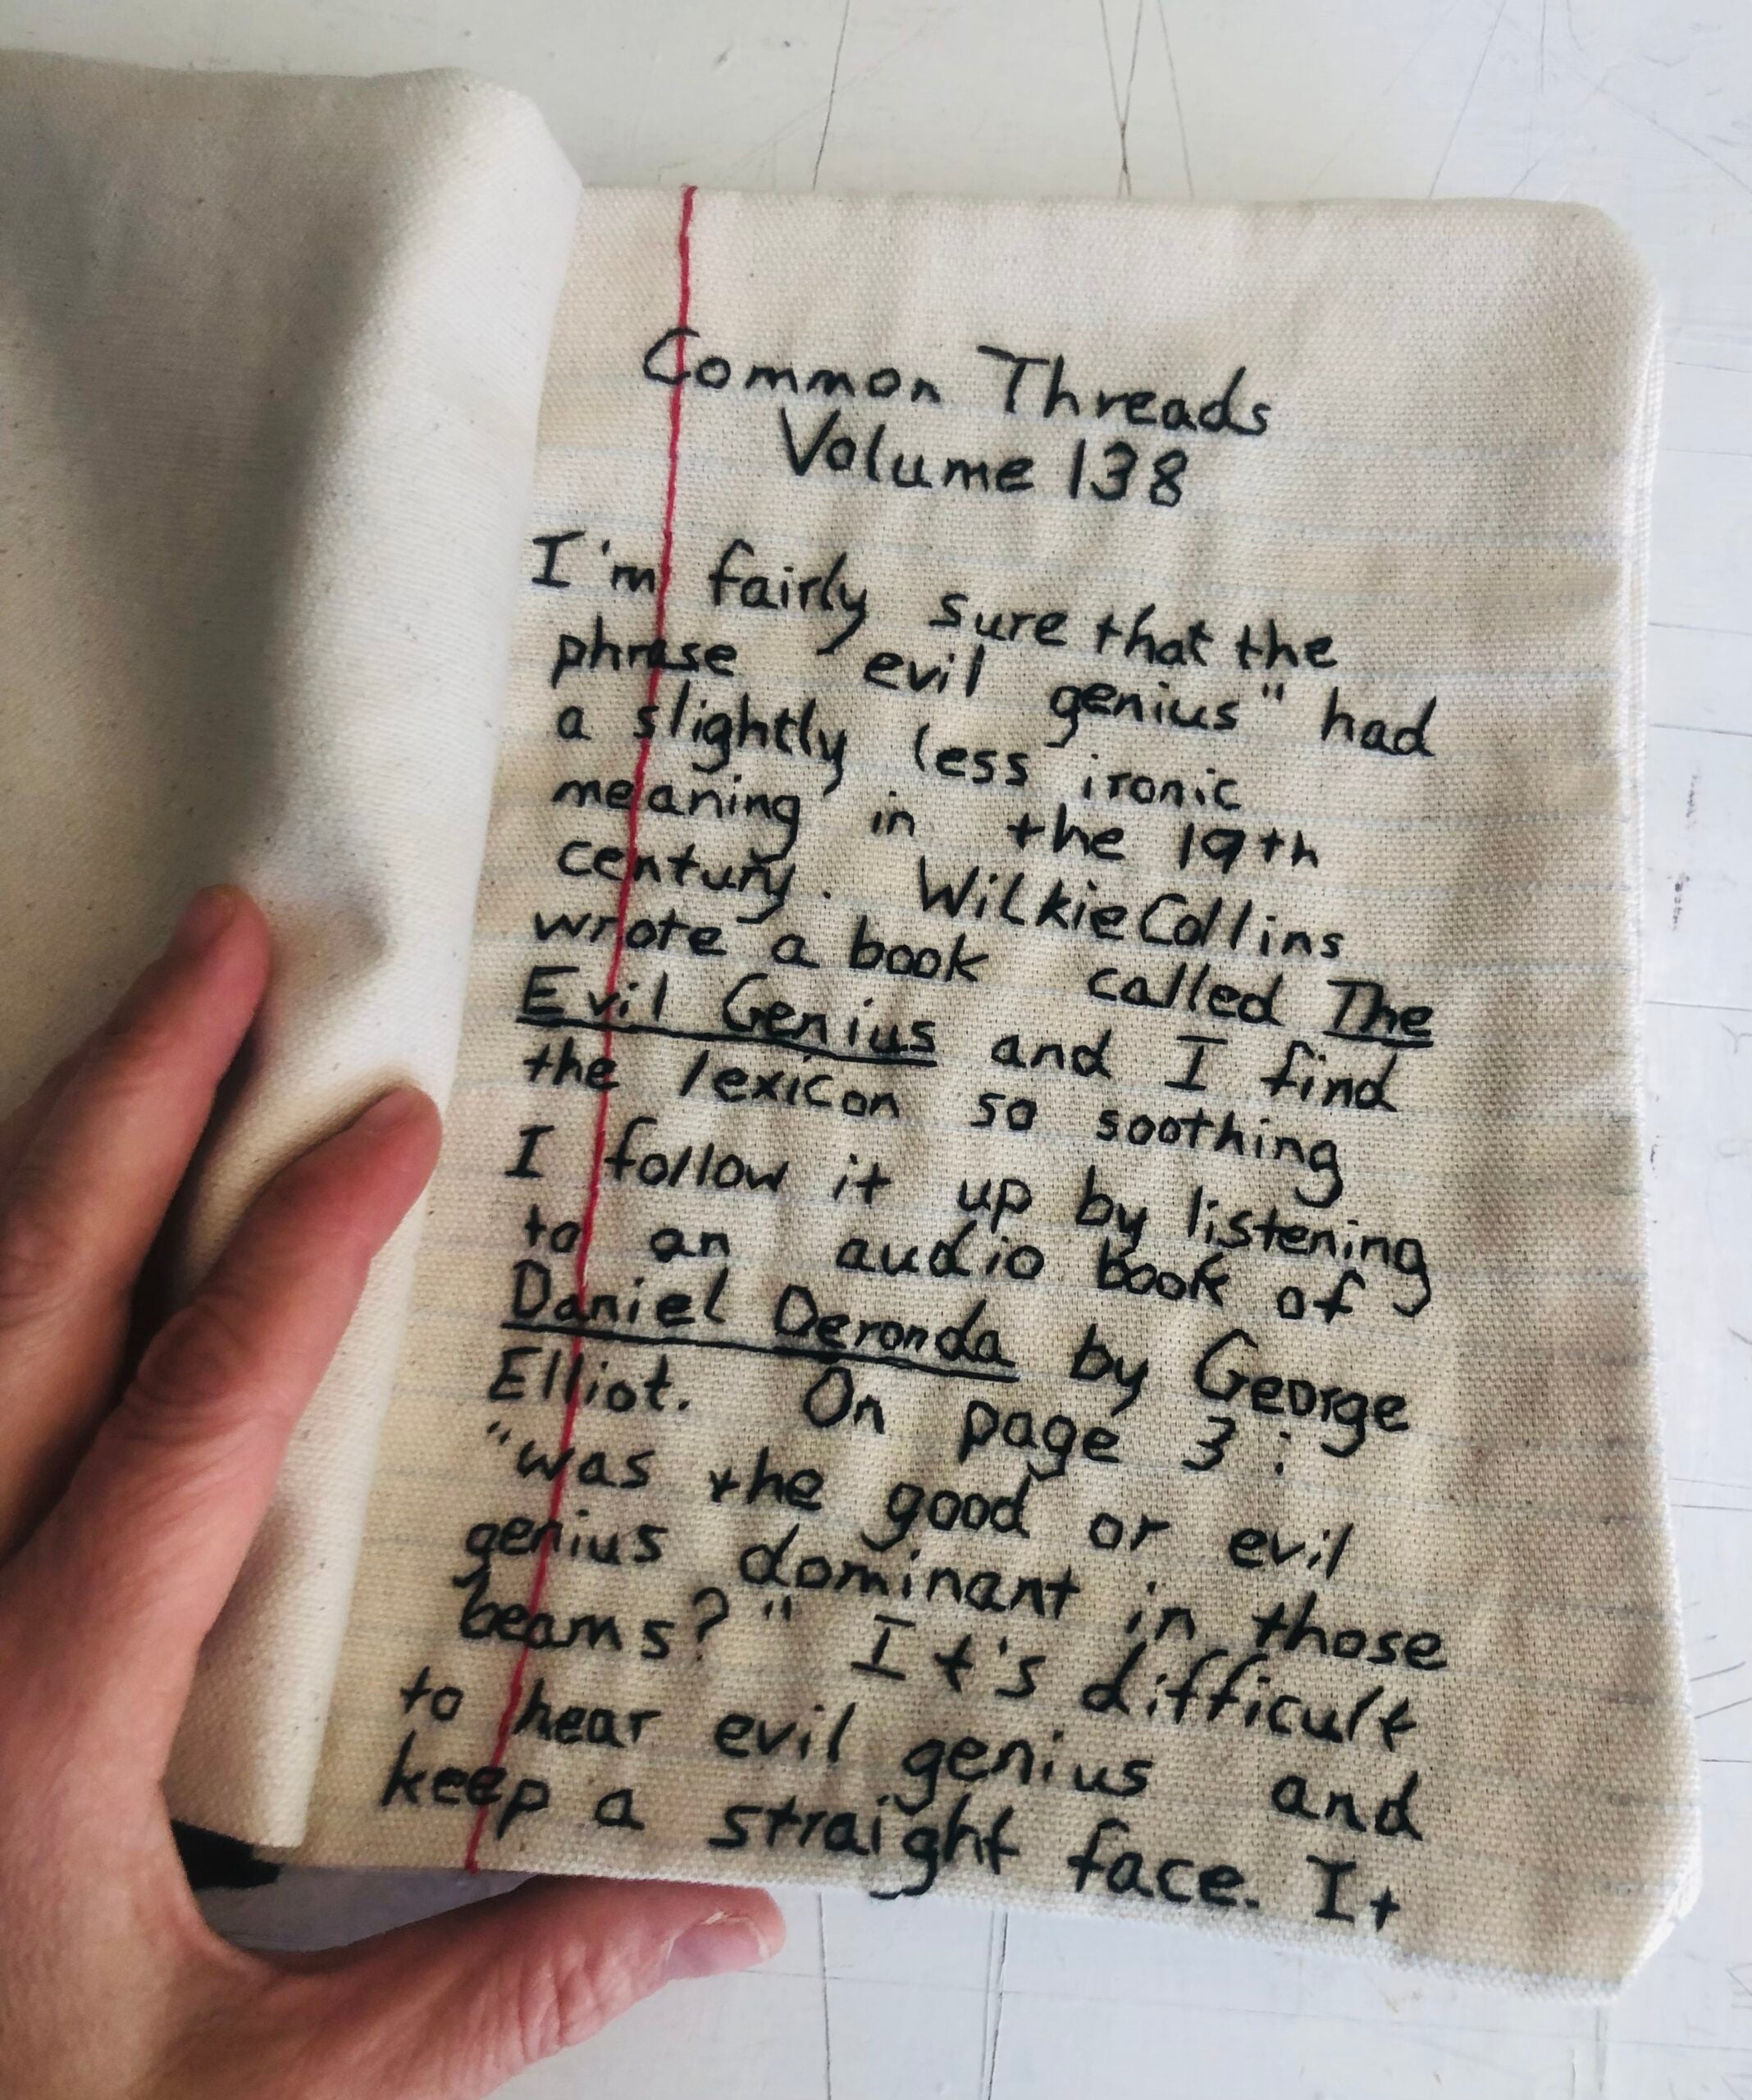 Common Threads
Volume 138
I'm fairly sure that the
phrase "evil genius" had
a slightly less ironic
meaning in the 19th
century. Wilkie Collins
wrote a book called The
Evil Genius and I find
the lexicon so soothing
I follow it up by listening
to an audio book of
Daniel Deronda by George
Elliot. On page 3:
"was the good or evil
genius dominant in those
beams?" It's difficult
to hear evil genius and
keep a straight face. It